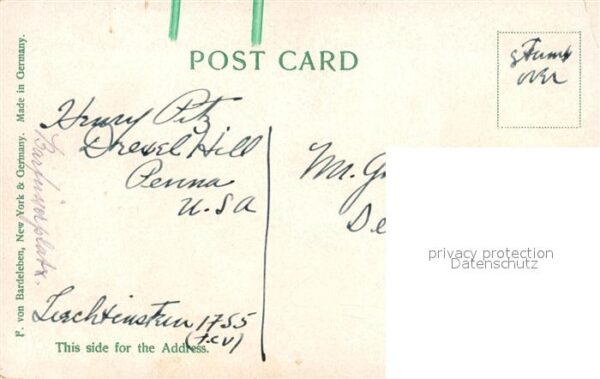 POST CARD
stamp
over
Henry Pitz
Drexel Hill
Penna
U.SA
Mr. G
De
privacy protection
Datenschutz
Liechtenstein 1755
This side for the Address.
F. von Bardeleben, New York & Germany. Made in Germany.
Barfüsserplatz.